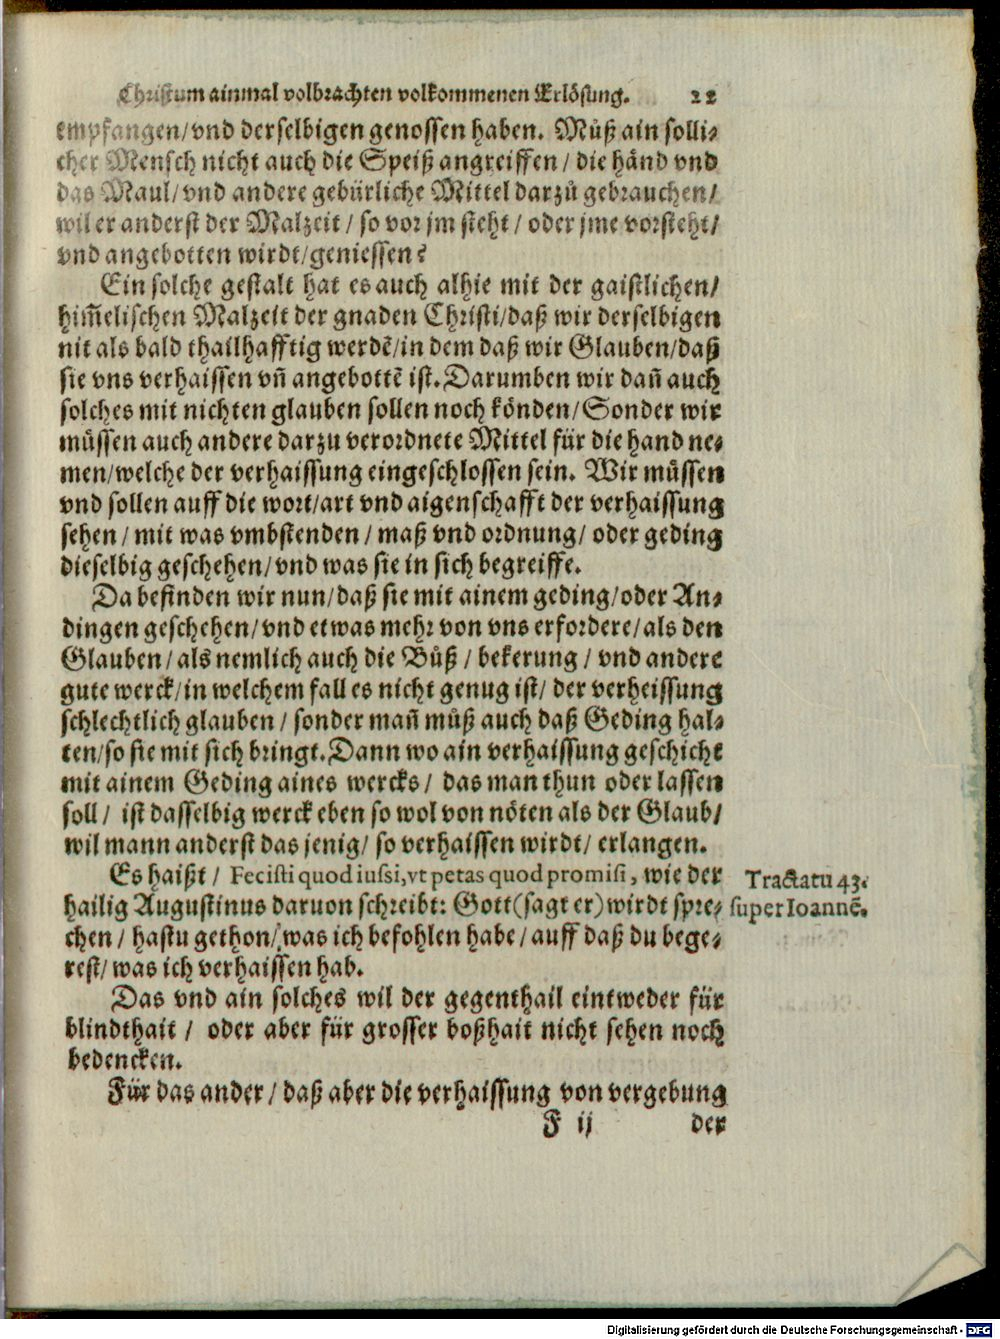 Christum ainmal volbrachten volkommenen Erlösung. 22
empfangen/vnd derselbigen genossen haben. Můß ain solli⸗
cher Mensch nicht auch die Speiß angreiffen/ die händ vnd
das Maul/ vnd andere gebürliche Mittel darzů gebrauchen/
wil er anderst der Malzeit/ so vor jm steht/ oder jme vorsteht/
vnd angebotten wirdt/geniessen?
Ein solche gestalt hat es auch alhie mit der gaistlichen/
him̃elischen Malzeit der gnaden Christi/daß wir derselbigen
nit als bald thailhafftig werdẽ/in dem daß wir Glauben/daß
sie vns verhaissen vñ angebottẽ ist. Darumben wir dañ auch
solches mit nichten glauben sollen noch könden/Sonder wir
müssen auch andere darzu verordnete Mittel für die hand ne⸗
men/welche der verhaissung eingeschlossen sein. Wir müssen
vnd sollen auff die wort/art vnd aigenschafft der verhaissung
sehen/ mit was vmbstenden/ maß vnd ordnung/ oder geding
dieselbig geschehen/vnd was sie in sich begreiffe.
Da befinden wir nun/daß sie mit ainem geding/oder An⸗
dingen geschehen/vnd etwas mehr von vns erfordere/als den
Glauben/als nemlich auch die Bůß/ bekerung/ vnd andere
gute werck/in welchem fall es nicht genug ist/ der verheissung
schlechtlich glauben/ sonder mañ můß auch daß Geding hal⸗
ten/so sie mit sich bringt. Dann wo ain verhaissung geschicht
mit ainem Geding aines wercks/ das man thun oder lassen
soll/ ist dasselbig werck eben so wol von nöten als der Glaub/
wil mann anderst das jenig/ so verhaissen wirdt/ erlangen.
Es haißt/ Fecisti quod iussi, vt petas quod promisi, wie der
hailig Augustinus daruon schreibt: Gott(sagt er)wirdt spre⸗
chen/ hastu gethon/ was ich befohlen habe/ auff daß du bege⸗
rest/ was ich verhaissen hab.
Tractatu 43.
super Ioannẽ.
Das vnd ain solches wil der gegenthail eintweder für
blindthait/ oder aber für grosser boßhait nicht sehen noch
bedencken.
Für das ander/ daß aber die verhaissung von vergebung
F ij der
Digitalisierung gefördert durch die Deutsche Forschungsgemeinschaft - DFG